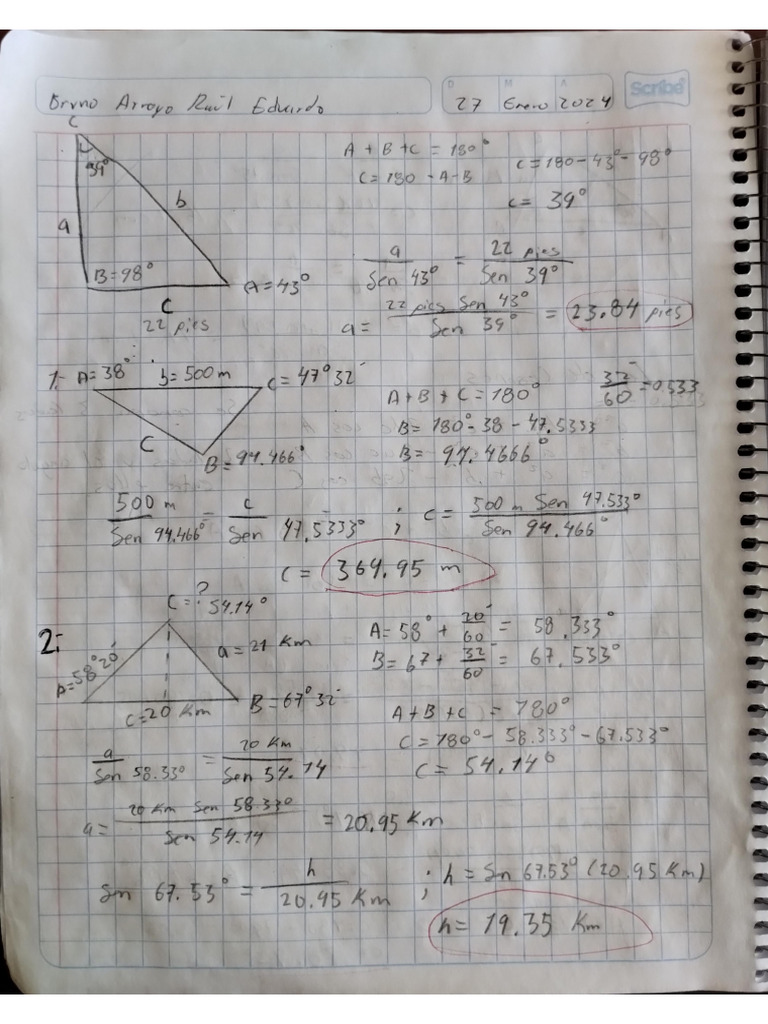 Bruno Arroyo Raúl Eduardo
D M A
27 Enero 2024
Scribe
C
39°
a
b
B=98°
A=43°
C
22 pies
A + B + C = 180°
C=180 -A-B
C=180-43°-98°
C= 39°
a/Sen 43° = 22 pies/Sen 39°
a= 22 pies Sen 43°/Sen 39° = 23.84 pies
1.- A=38° b=500m C=47°32´
C
B=94.466°
A+B+C=180°
32´/60=0.533
B=180°-38-47.5333
B= 94.4666°
500 m/Sen 94.466° = c/Sen 47.5333° ; c= 500 m Sen 47.533°/Sen 94.466°
C= 364.95 m
2.-
C=? 54.14°
A=58°20´
a=21 Km
C=20 Km
B=67°32´
A=58° + 20´/60 = 58.333°
B=67+ 32´/60 = 67.533°
A+B+C = 180°
C=180°-58.333°-67.533°
C=54.14°
a/Sen 58.33° = 20 Km/Sen 54.14
a= 20 Km Sen 58.33°/Sen 54.14 =20.95 Km
Sn 67.53° = h/20.95 Km ; h=Sn 67.53° (20.95 Km)
h= 19.35 Km